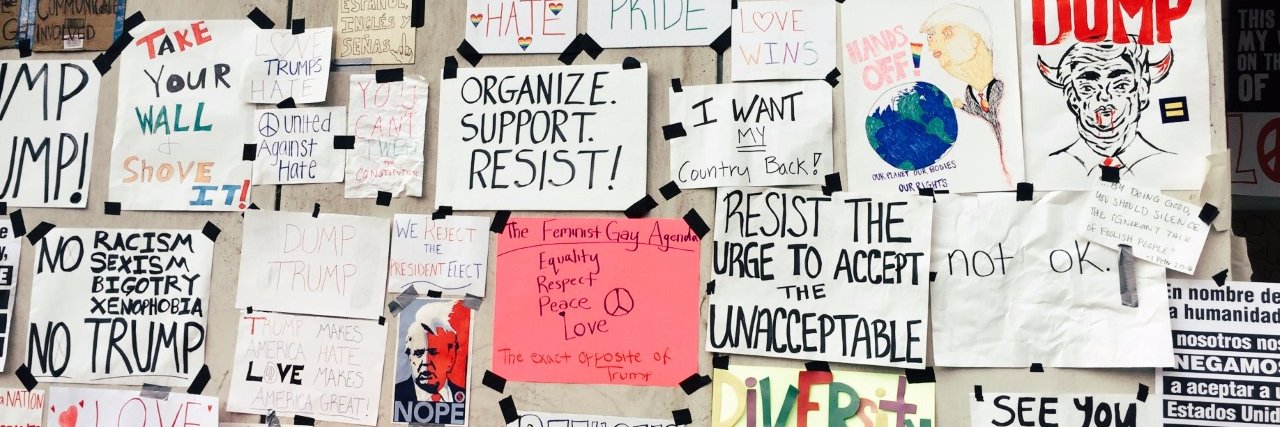 Get INVOLVED
UMP
UMP!
TAKE
YOUR
WALL
&
SHOVE
IT!
LOVE
TRUMPS
HATE
united
Against
Hate
ESPAÑOL
INGLÉS Y
SEÑAS
YOU
CAN'T
TWEET
THE
CONSTITUTION
HATE
PRIDE
LOVE
WINS
ORGANIZE.
SUPPORT.
RESIST!
I WANT
MY
Country Back!
HANDS
OFF!
OUR PLANET OUR BODIES
OUR RIGHTS
DUMP
"BY DOING GOOD,
YOU SHOULD SILENCE
THE IGNORANT TALK
OF FOOLISH PEOPLE"
THIS
MY
ON TH
OF
NO RACISM
SEXISM
BIGOTRY
XENOPHOBIA
NO TRUMP
DUMP
TRUMP
WE REJECT
THE
PRESIDENT ELECT
TRUMP MAKES
AMERICA HATE
LOVE MAKES
AMERICA GREAT!
NOPE
The Feminist Gay Agenda
Equality
Respect
Peace
Love
The exact opposite of
Trump
RESIST THE
URGE TO ACCEPT
THE
UNACCEPTABLE
not ok.
En nombre de
a humanidad
nosotros nos
NEGAMOS
a aceptar a u
Estados Unid
a NATION
LOVE
DiVERSity
SEE YOU